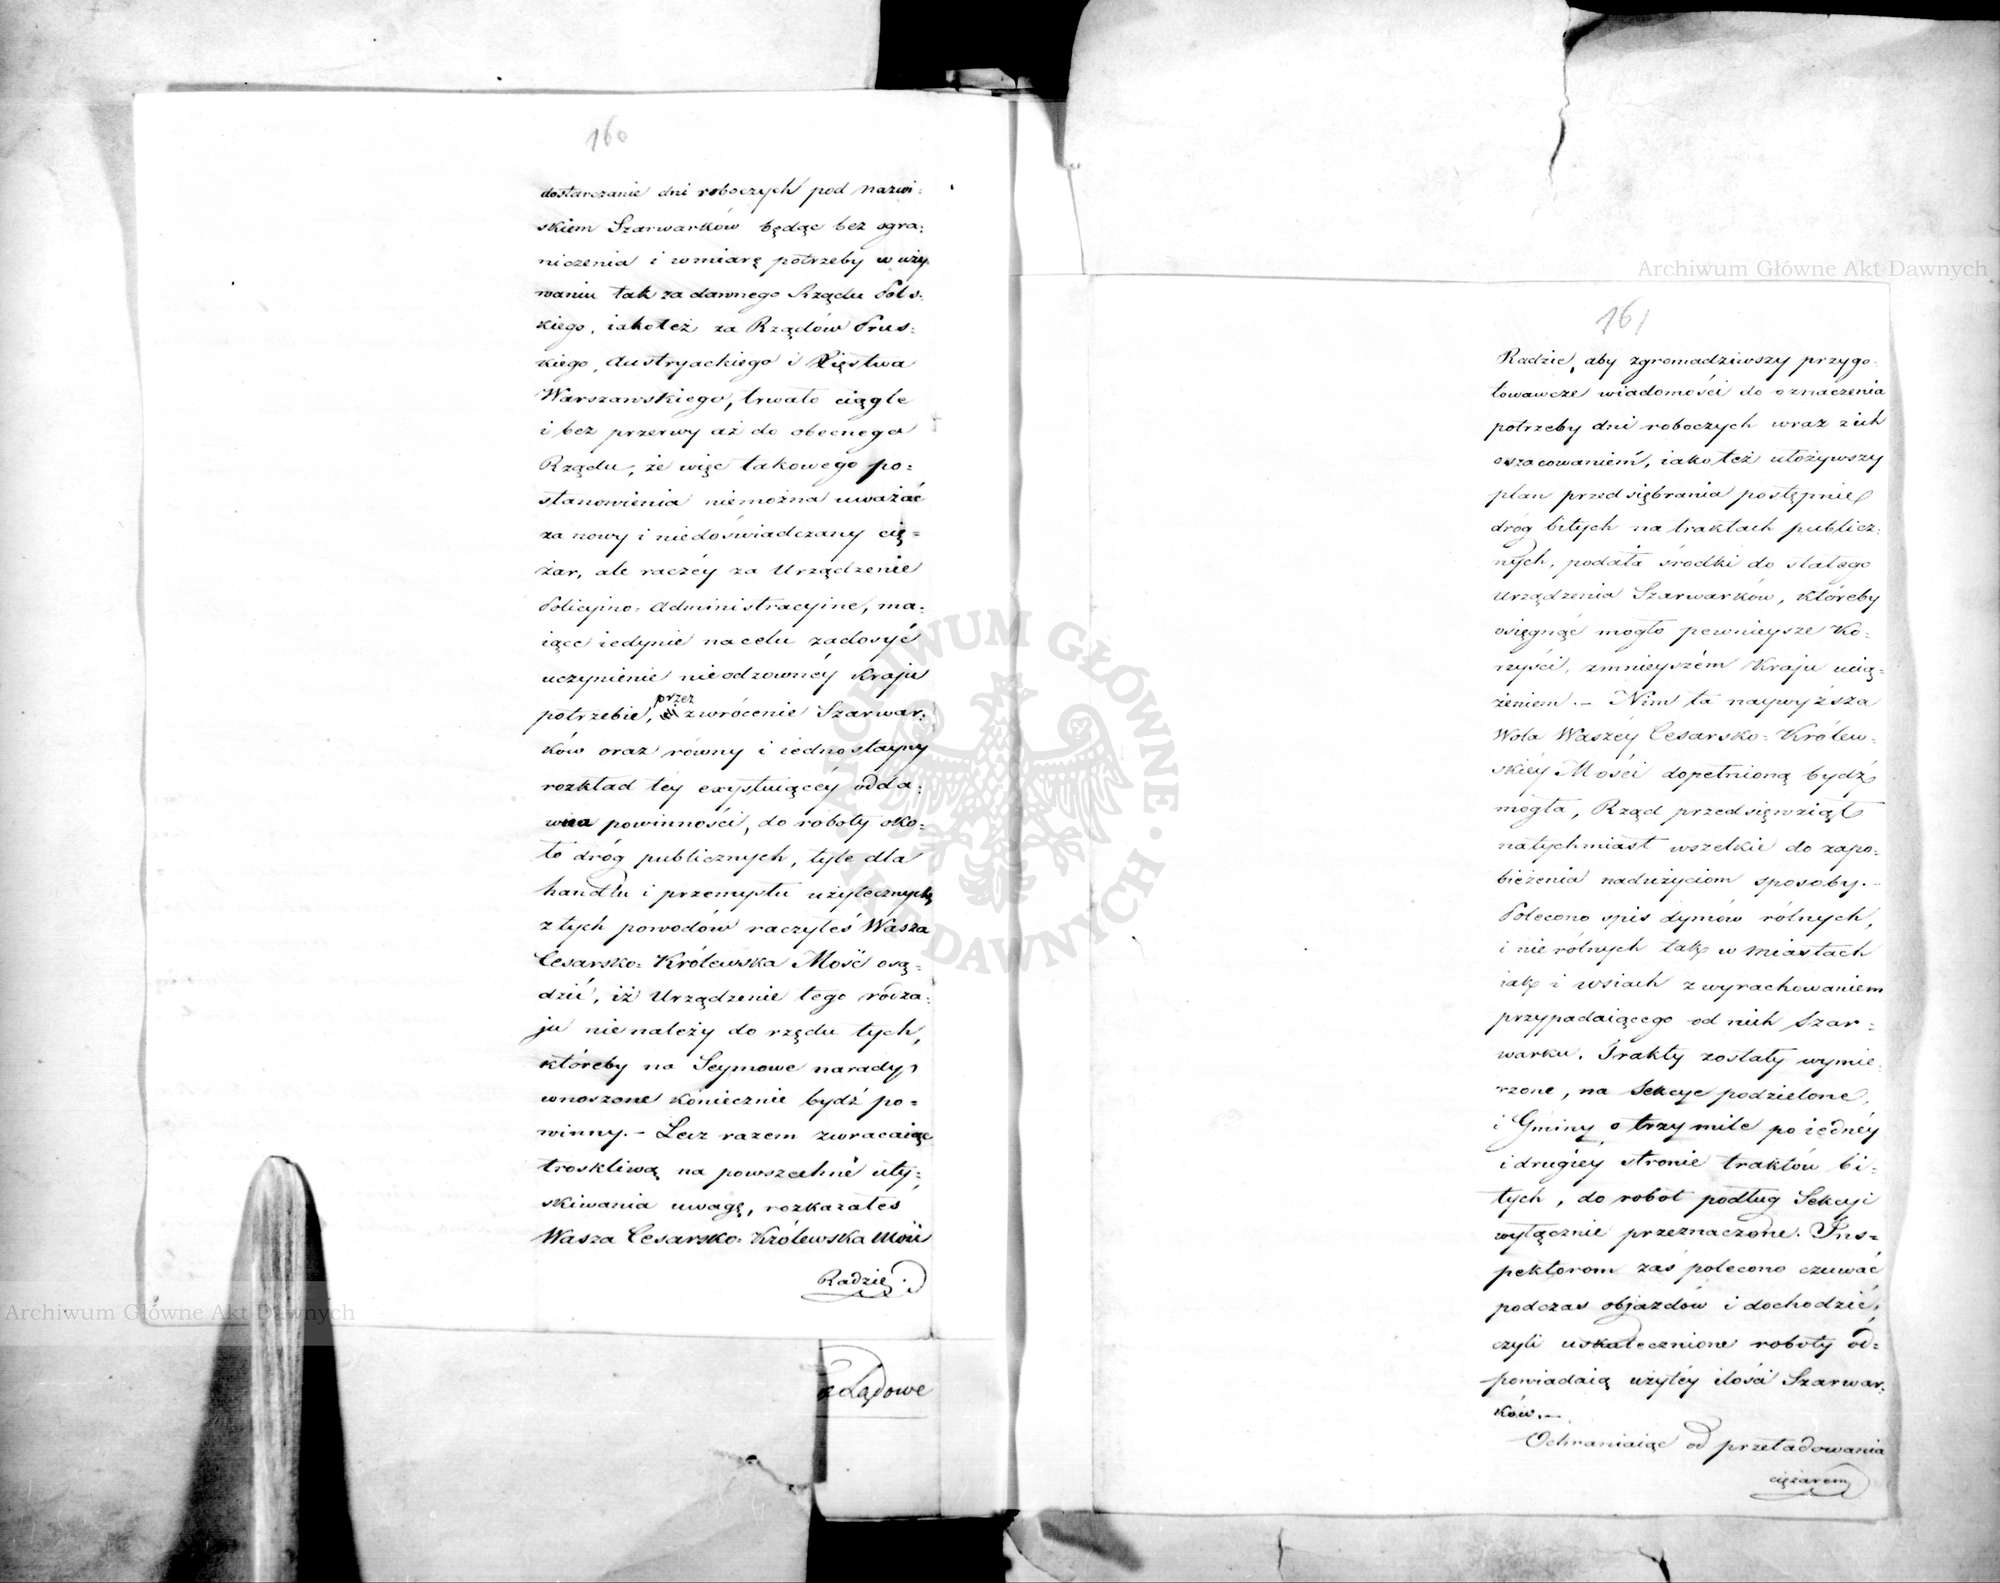 160
dostarczanie dni roboczych pod nazwi:
skiem Szarwarków będąc bez ogra:
niczenia i w miarę potrzeby w uży
waniu tak za dawnego Rządu Pols:
kiego, iako też za Rządów Prus:
kiego, Austryackiego i Xięstwa
Warszawskiego, trwało ciągle
i bez przerwy aż do obecnego
Rządu, że więc takowego po:
stanowienia niemożna uważać
za nowy i niedoświadczany cię=
żar, ale raczéy za Urządzenie
Policyino-Administracyine, ma:
iące iedynie na celu zadosyć
uczynienie nieodzownéy Kraju
potrzebie, przez zwrócenie Szarwar:
ków oraz równy i iednostayny
rozkład téy exystuiącéy odda:
wna powinności, do roboty oko:
ło dróg publicznych, tyle dla
handlu i przemysłu użytecznych
z tych powodów raczyłeś Wasza
Cesarsko-Królewska Mość osą:
dzić, iż Urządzenie tego rodza:
ju nie należy do rzędu tych,
któreby na Seymowe narady
wnoszone koniecznie bydź po=
winny. – Lecz razem zwracaiąc
troskliwą na powszechne uty:
skiwania uwagę, rozkazałeś
Wasza Cesarsko-Królewska Mość
Radzie
Lądowe
161
Radzie, aby zgromadziwszy przygo:
towawcze wiadomości do oznaczenia
potrzeby dni roboczych wraz z ich
oszacowaniem, iako też ułożywszy
plan przedsiębrania postępnie
dróg bitych na traktach publicz:
nych, podała środki do stałego
urządzenia Szarwarków, któreby
osięgnąć mogło pewnieysze ko:
rzyści, zmnieyszém Kraju ucią:
żeniem. – Nim ta naywyższa
Wola Waszéy Cesarsko-Królew:
skiey Mości dopełnioną bydź
mogła, Rząd przedsięwziął
natychmiast wszelkie do zapo:
bieżenia nadużyciom sposoby. –
Polecono spis dymów rólnych,
i nierólnych tak w miastach
iak i wsiach z wyrachowaniem
przypadaiącego od nich Szar:
warku. Trakty zostały wymie:
rzone, na Sekcye podzielone,
i Gminy o trzy mile po iednéy
i drugiéy stronie traktów bi:
tych, do robot podług Sekcyi
wyłącznie przeznaczone. Ins=
pektorom zaś polecono czuwać
podczas objazdów i dochodzić,
czyli uskutecznione roboty od=
powiadaią użytéy ilości Szarwar:
ków. –
Ochraniaiąc od przeładowania
ciężarem
Archiwum Główne Akt Dawnych
Archiwum Główne Akt Dawnych
ARCHIWUM GŁÓWNE AKT DAWNYCH